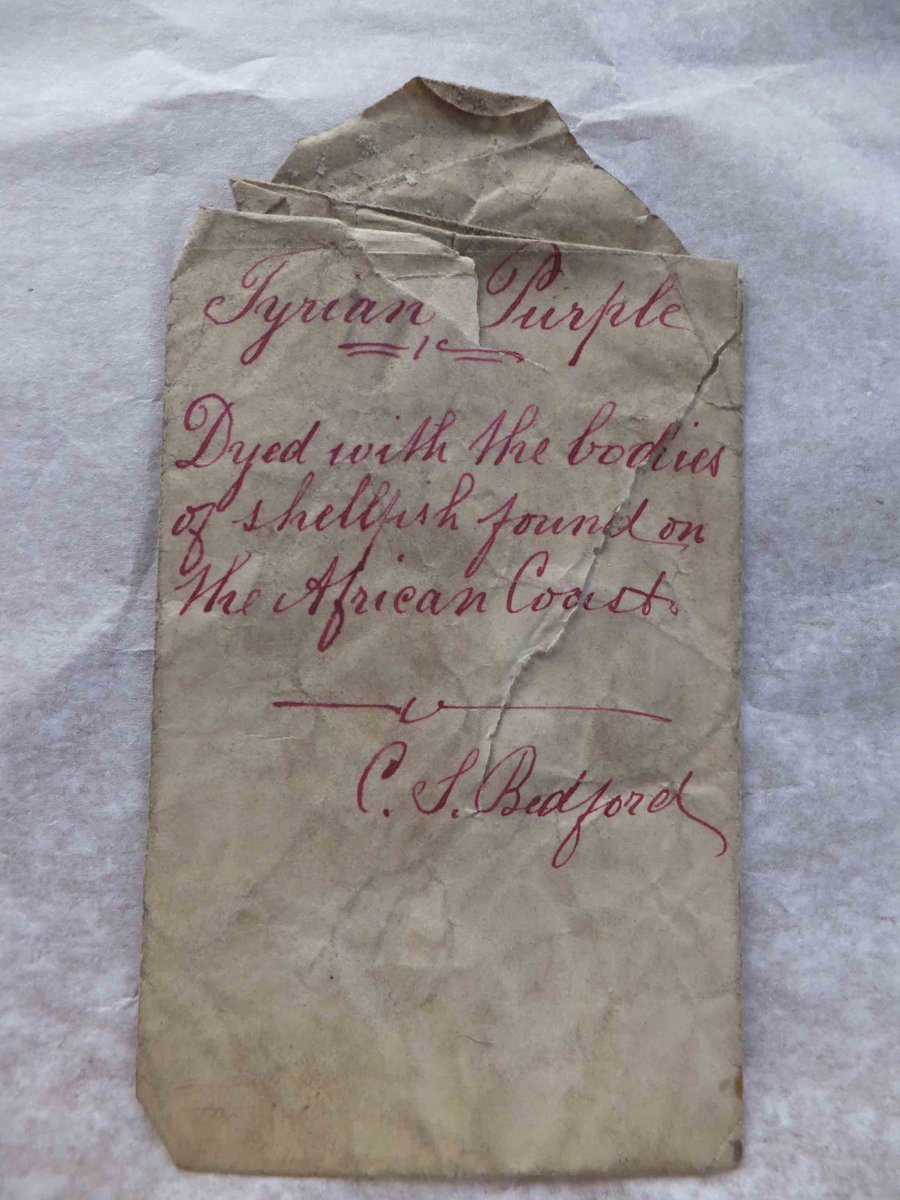 Tyrian Purple
Dyed with the bodies
of shellfish found on
the African Coast.
C. S. Bedford